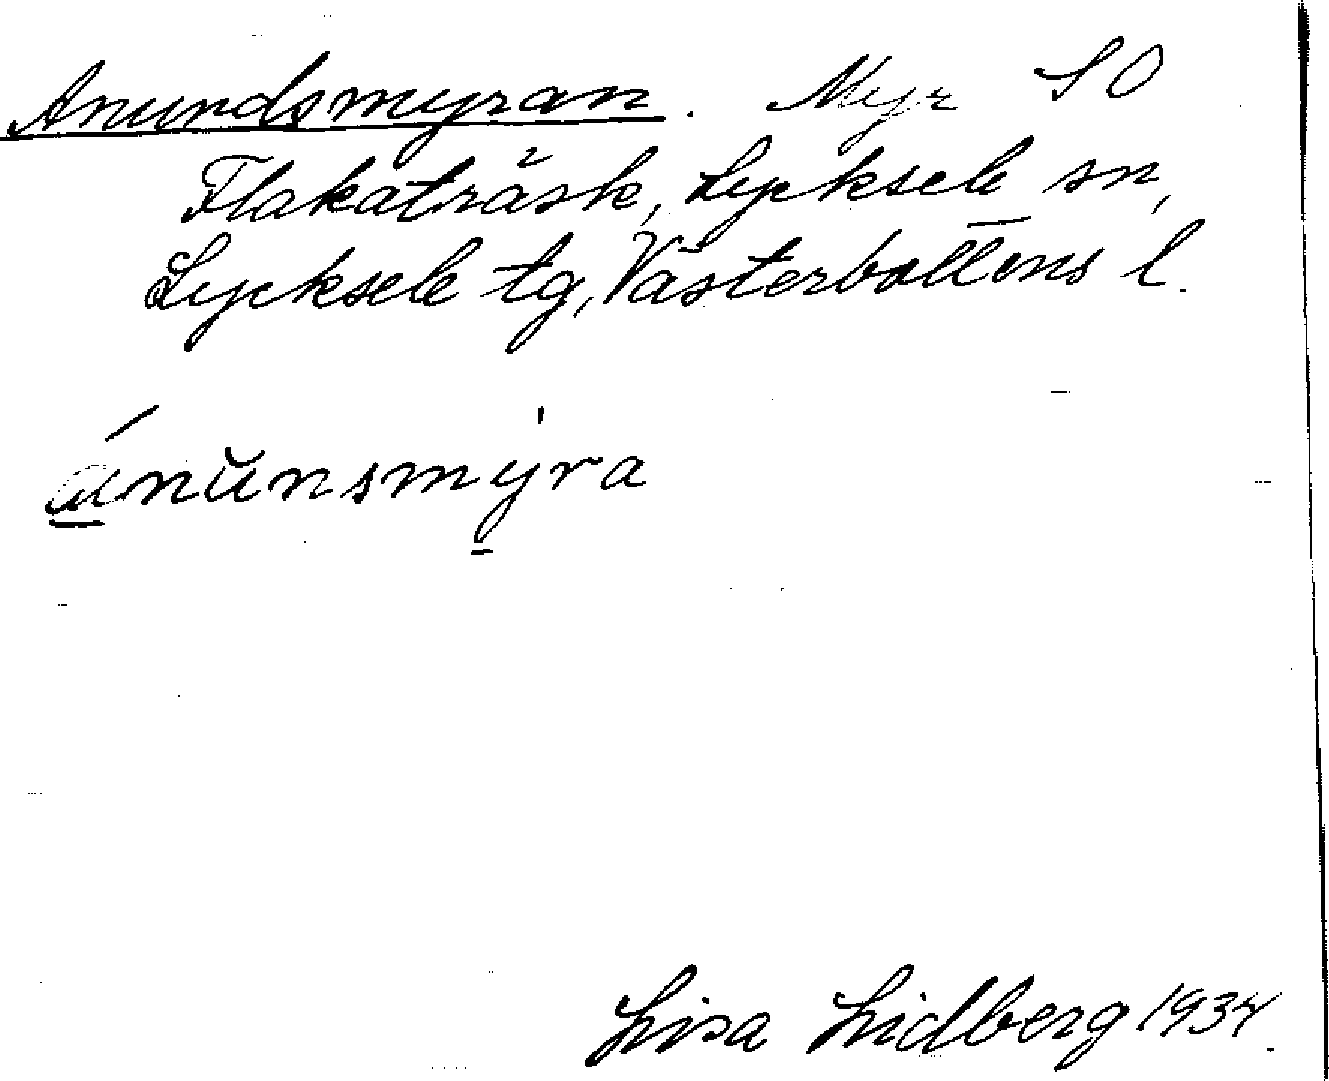 Anundsmyran. Myr SO
Flakaträsk, Lycksele sn,
Lycksele tg, Västerbottens l.
ánŭnsmýra
Lisa Lidberg 1934.